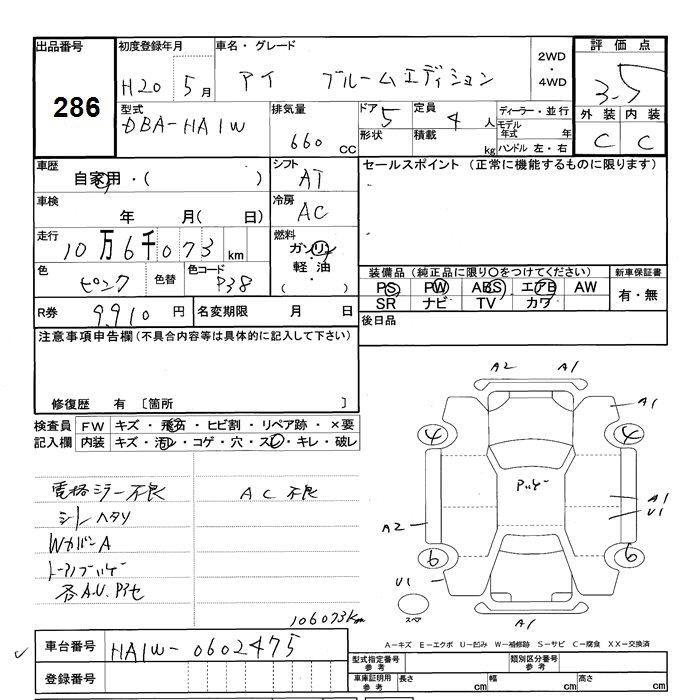 出品番号 初度登録年月 車名・グレード 2WD・4WD 評価点
286 H20 5月 アイ ブルームエディション 3.5
型式 排気量 ドア 定員 ディーラー・並行 外装 内装
DBA-HA1W 660 cc 5 4人 モデル年式 年 C C
形状 積載 kg ハンドル 左・右
車歴 シフト セールスポイント (正常に機能するものに限ります)
自家用・( ) AT
車検 冷房
年 月( 日) AC
走行 燃料
10万6千073 km ガソリン・軽油 ( )
色 色替 色コード 装備品(純正品に限り○をつけてください) 新車保証書
ピンク P38 PS PW ABS エアB AW 有・無
SR ナビ TV カワ
R券 9,910円 名変期限 月 日 後日品
注意事項申告欄(不具合内容等は具体的に記入して下さい)
修復歴 有 〔箇所 〕
検査員記入欄 FW キズ・飛石・ヒビ割・リペア跡・×要
内装 キズ・汚レ・コゲ・穴・スレ・キレ・破レ
A2 A1
A1
4 4
電格ミラー不良 AC不良
シートヘタリ
WカバーA
各A.U.Pアセ
A2
A1
U1
6 6
U1
スペア
A1
106073km
A-キズ E-エクボ U-凹み W-補修跡 S-サビ C-腐食 XX-交換済
車台番号 HA1W-0602475
登録番号
型式指定番号 参考 類別区分番号 参考
車庫証明用 参考 長さ cm 幅 cm 高さ cm